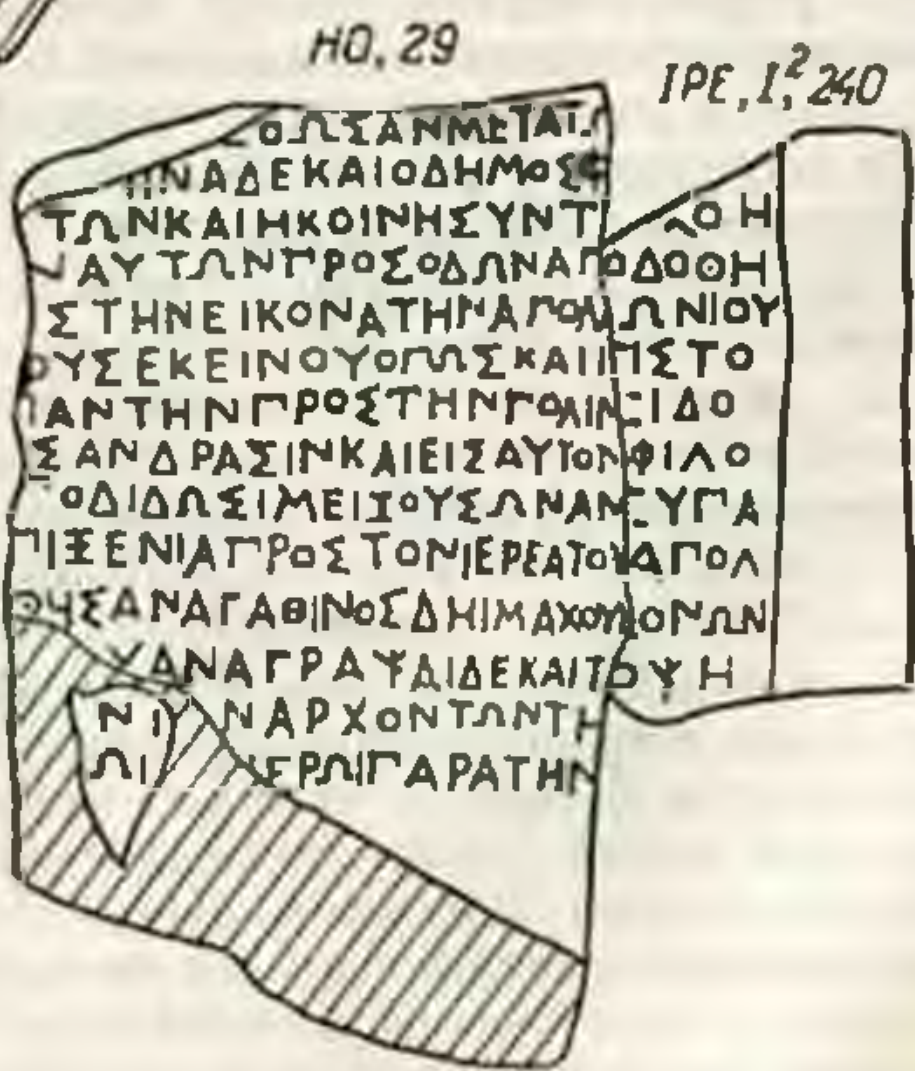 НО, 29
IPE, I,² 240
ΟΩΣΑΝΜΕΤΑΙ
ΝΑΔΕΚΑΙΟΔΗΜΟΣ
ΤΩΝΚΑΙΗΚΟΙΝΗΣΥΝΤ ΛΟΗ
ΑΥΤΩΝΓΡΟΣΟΔΩΝΑΓΟΔΟΘΗ
ΣΤΗΝΕΙΚΟΝΑΤΗΝΑΓΟΛΛΩΝΙΟΥ
ΟΥΣΕΚΕΙΝΟΥΟΓΩΣΚΑΙΗΓΙΣΤΟ
ΑΝΤΗΝΓΡΟΣΤΗΝΓΟΛΙΝΞΙΔΟ
ΣΑΝΔΡΑΣΙΝΚΑΙΕΙΣΑΥΤΟΝΦΙΛΟ
ΟΔΙΔΩΣΙΜΕΙΖΟΥΣΩΝΑΝΕΥΓΑ
ΓΙΞΕΝΙΑΓΡΟΣΤΟΝΙΕΡΕΑΤΟΥΑΓΟΛ
ΘΗΣΑΝΑΓΑΘΙΝΟΣΔΗΙΜΑΧΟΥΙΟΝΩΝ
ΥΑΝΑΓΡΑΨΑΙΔΕΚΑΙΤΟΨΗ
ΝΙΥ ΝΑΡΧΟΝΤΩΝΤΗ
ΩΙ ΙΕΡΩΙΓΑΡΑΤΗΝ